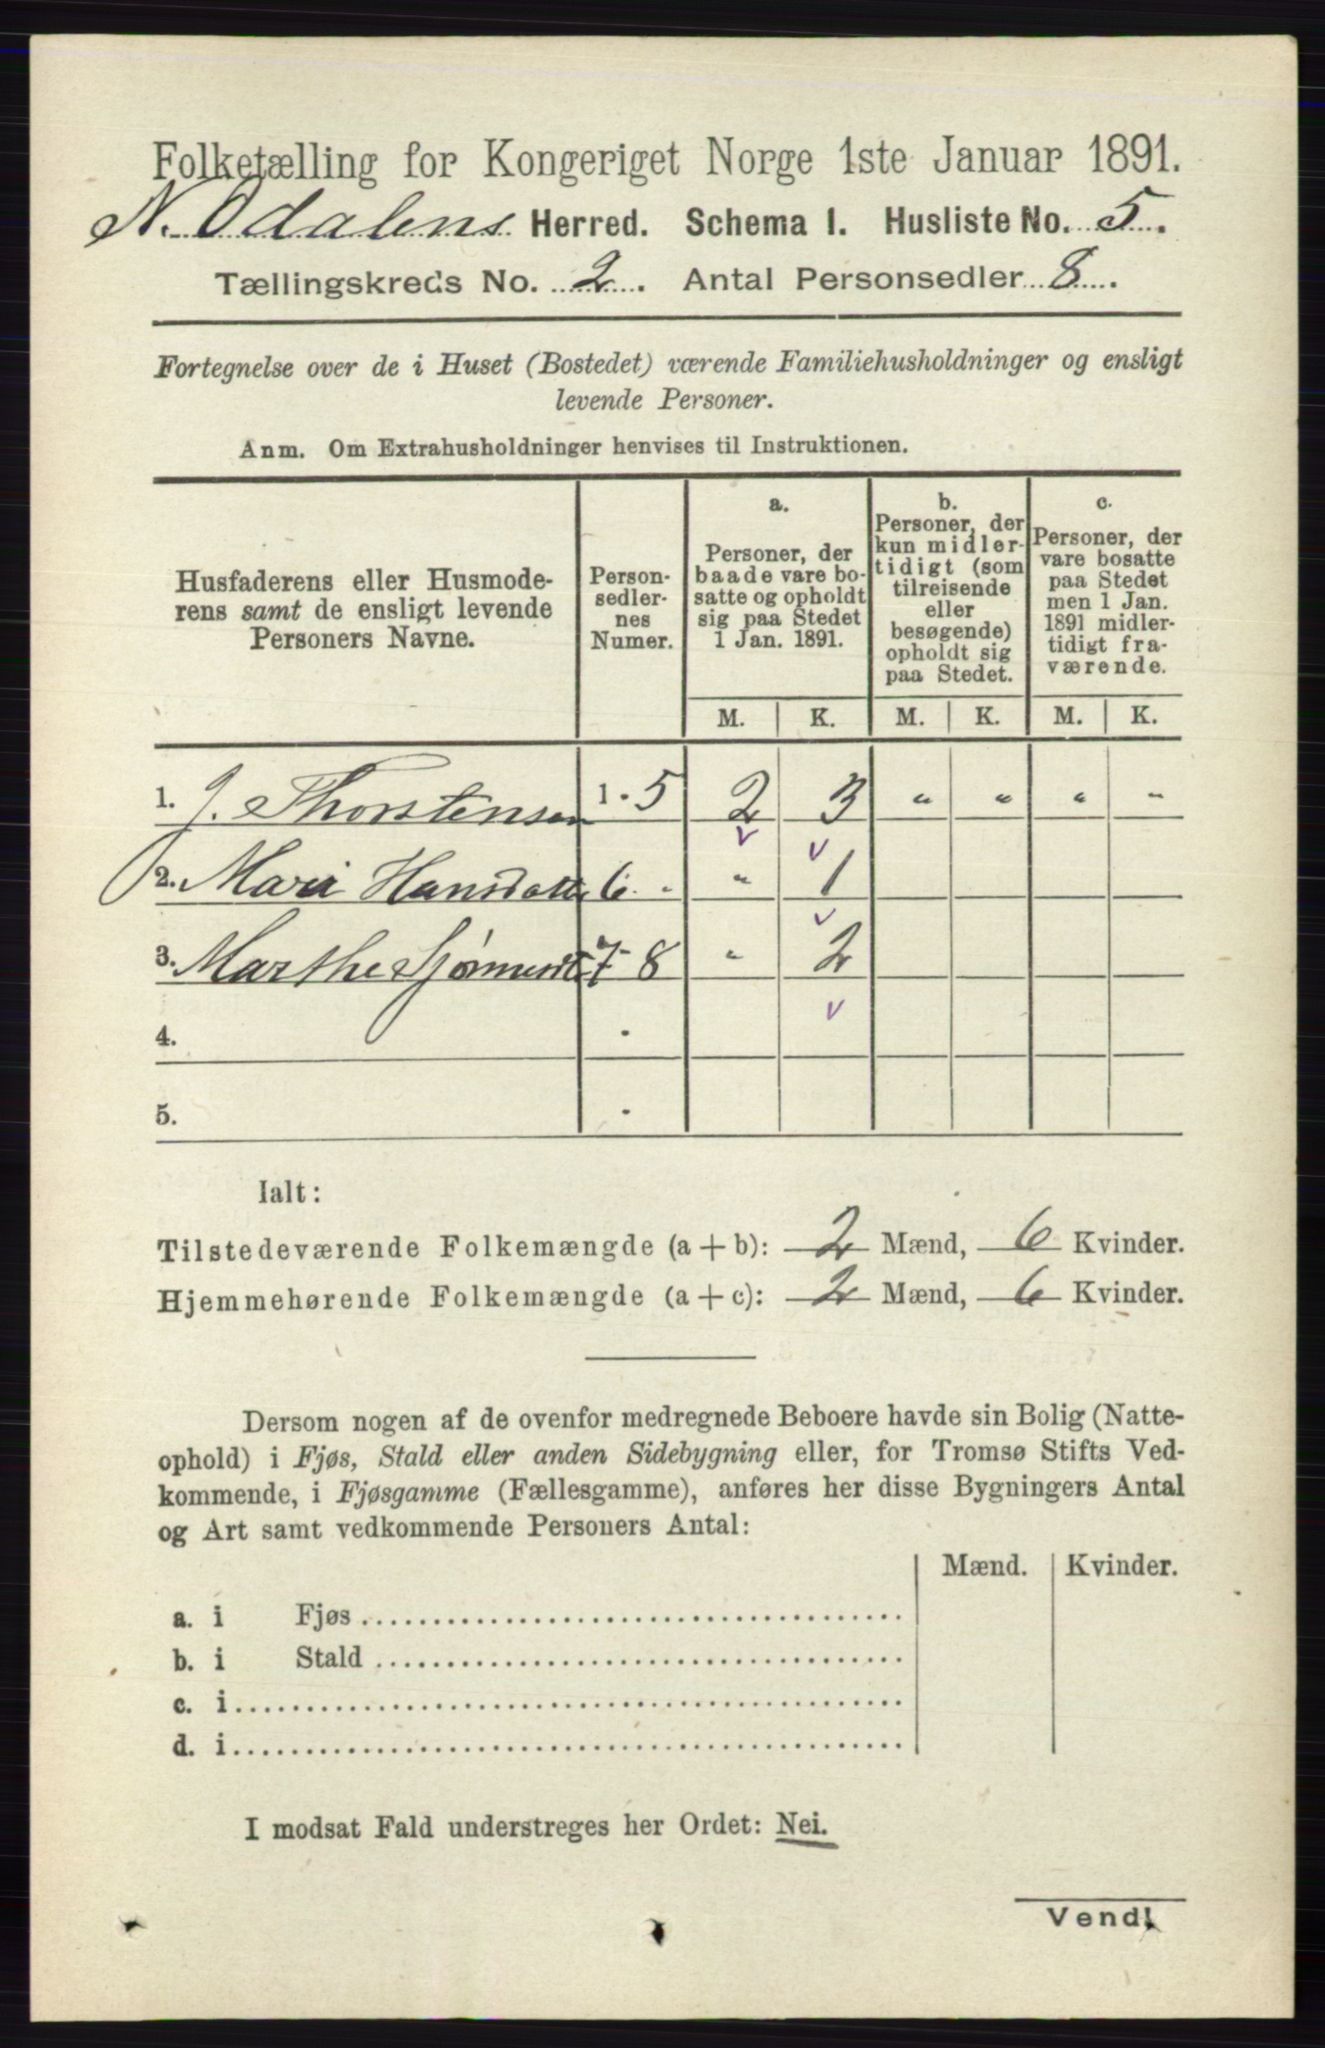 Folketælling for Kongeriget Norge 1ste Januar 1891.
N. Odalens Herred. Schema I. Husliste No. 5.
Tællingskreds No. 2. Antal Personsedler 8.
Fortegnelse over de i Huset (Bostedet) værende Familiehusholdninger og ensligt
levende Personer.
Anm. Om Extrahusholdninger henvises til Instruktionen.
Husfaderens eller Husmode-
rens samt de ensligt levende
Personers Navne.
Person-
sedler-
nes
Numer.
a.
Personer, der
baade vare bo-
satte og opholdt
sig paa Stedet
1 Jan. 1891.
b.
Personer, der
kun midler-
tidigt (som
tilreisende
eller
besøgende)
opholdt sig
paa Stedet.
c.
Personer, der
vare bosatte
paa Stedet
men 1 Jan.
1891 midler-
tidigt fra-
værende.
M. K. M. K. M. K.
1. J. Thorstensen 1 - 5 2 3 " " " "
2. Mari Hansdatter 6 - " 1
3. Marthe 7 - 8 " 2
4. -
5. -
Ialt:
Tilstedeværende Folkemængde (a + b): 2 Mænd, 6 Kvinder.
Hjemmehørende Folkemængde (a + c): 2 Mænd, 6 Kvinder.
Dersom nogen af de ovenfor medregnede Beboere havde sin Bolig (Natte-
ophold) i Fjøs, Stald eller anden Sidebygning eller, for Tromsø Stifts Ved-
kommende, i Fjøsgamme (Fællesgamme), anføres her disse Bygningers Antal
og Art samt vedkommende Personers Antal:
Mænd. Kvinder.
a. i Fjøs
b. i Stald
c. i
d. i
I modsat Fald understreges her Ordet: Nei.
Vend!